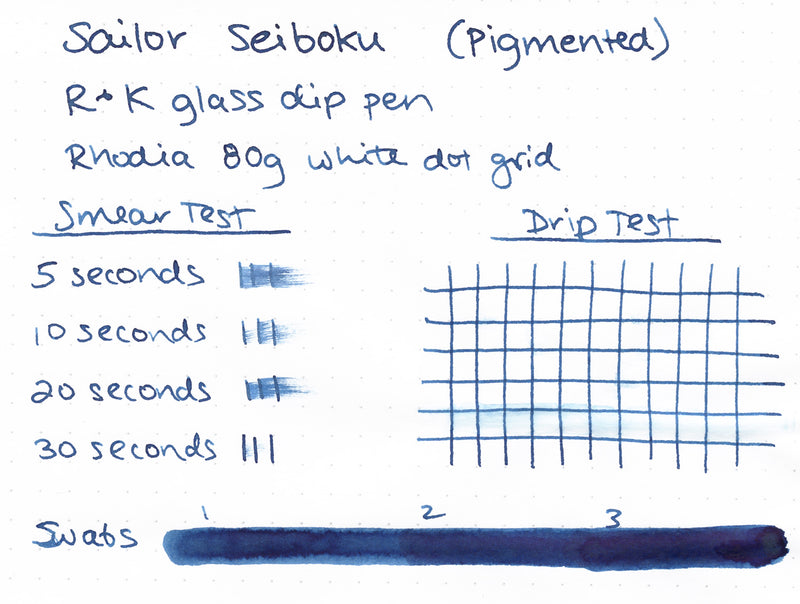 Sailor Seiboku (Pigmented)
R+K glass dip pen
Rhodia 80g white dot grid
Smear Test
5 seconds
10 seconds
20 seconds
30 seconds
Drip Test
Swabs 1 2 3